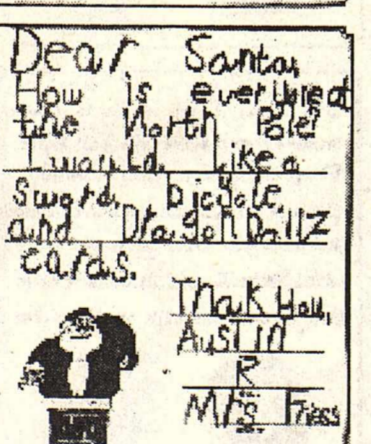 Dear Santa,
How is everyone at
the North Pole?
I would like a
sword, bicycle,
and Dragon Ball Z
cards.
Thank You,
Austin
R
Mrs. Friess